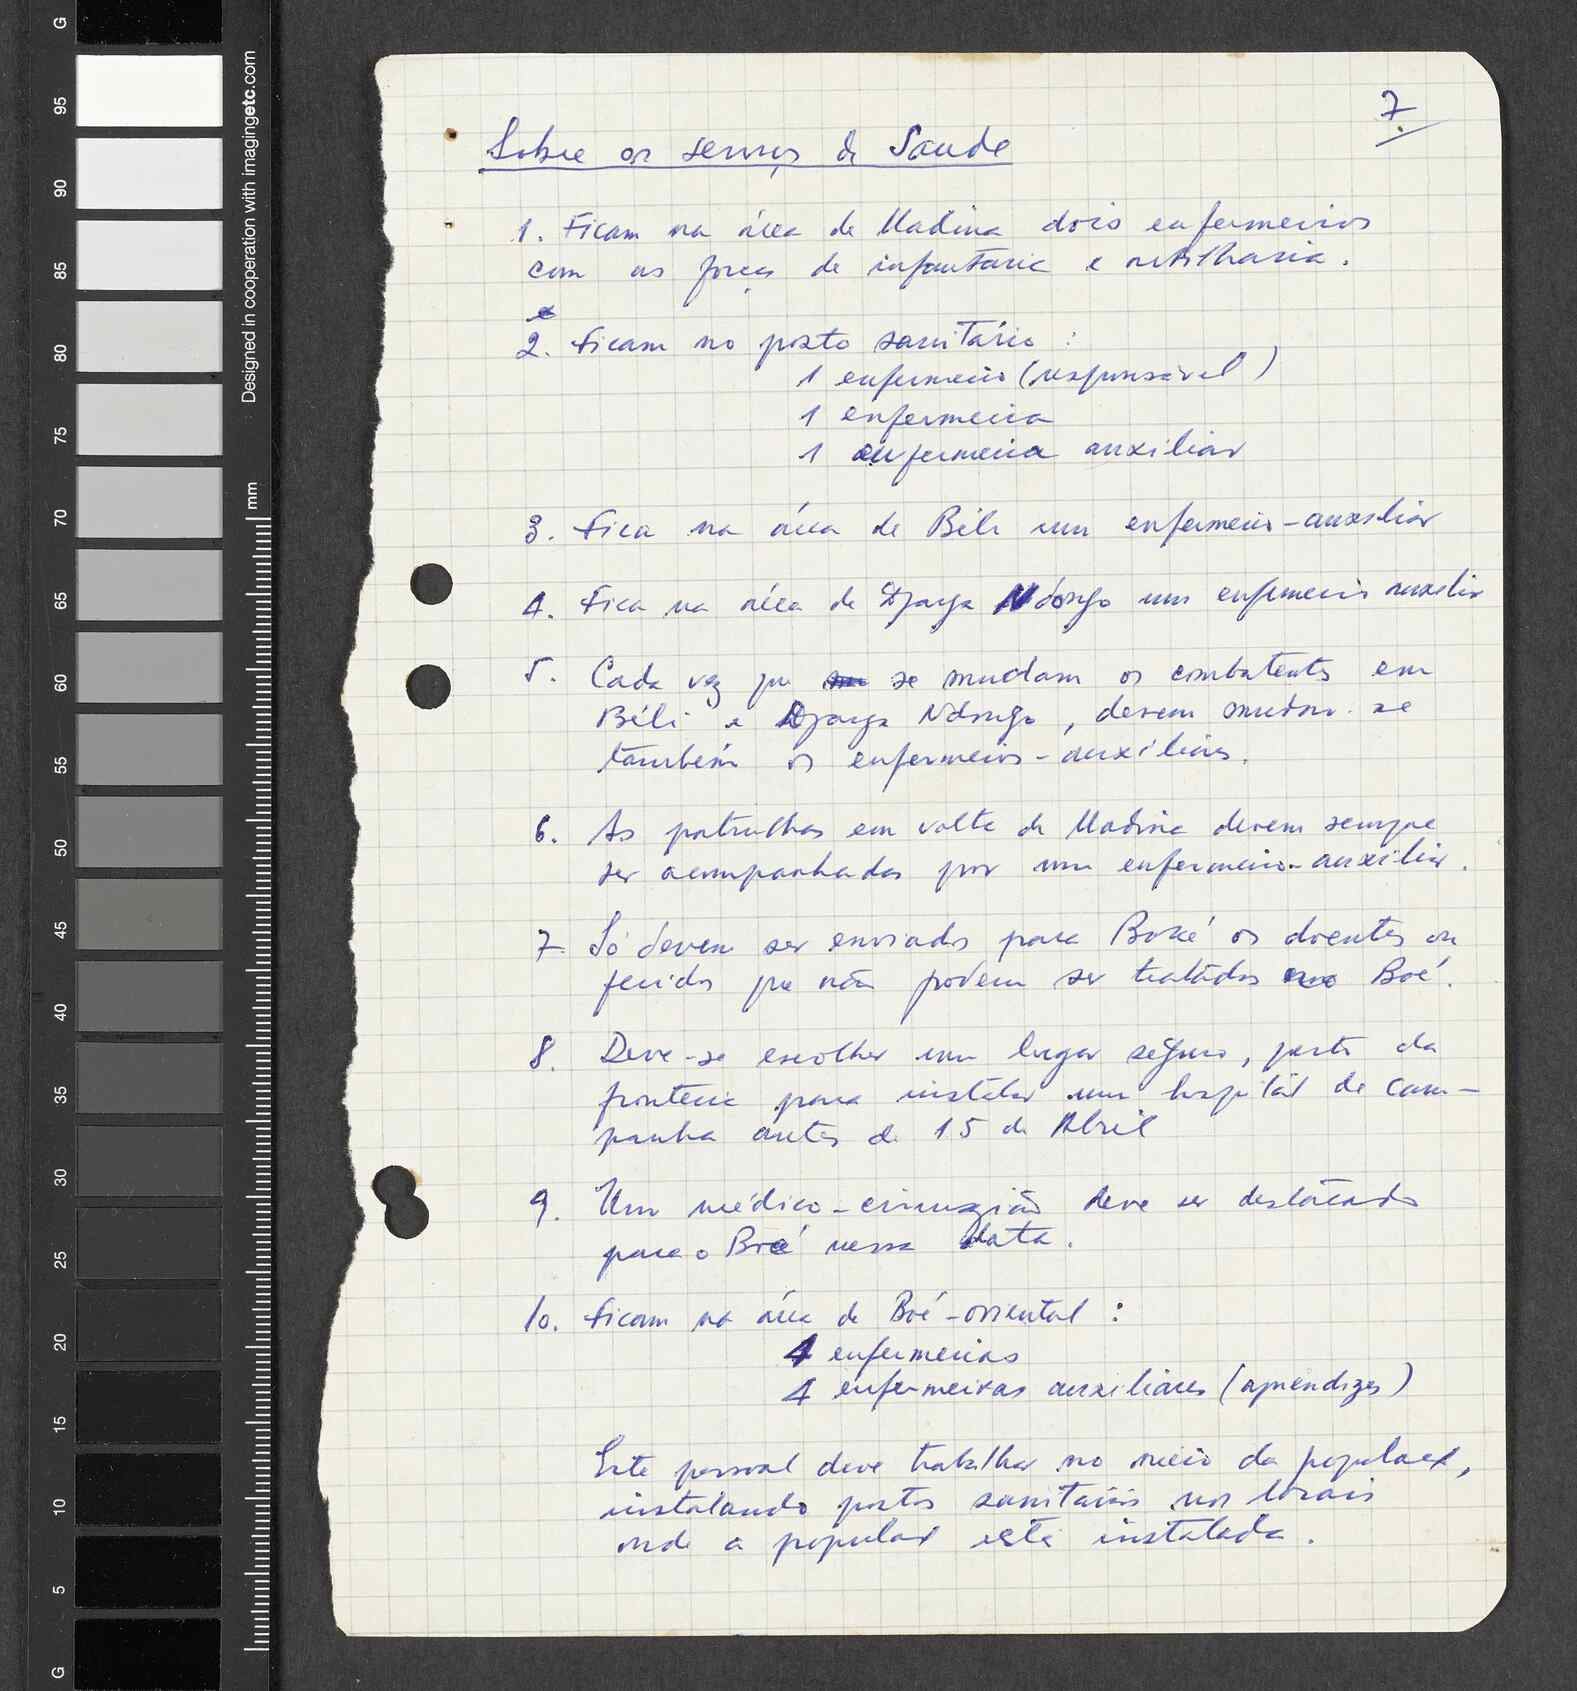 7.
Sobre os serviços de Saude
1. Ficam na área de Madina dois enfermeiros
com as forças de infantaria e artilharia.
2. Ficam no posto sanitário :
1 enfermeiro (responsável)
1 enfermeira
1 enfermeira auxiliar
3. Fica na área de Béli um enfermeiro-auxiliar
4. Fica na área de Djarga Ndongo um enfermeiro auxiliar
5. Cada vez que se mudam os combatentes em
Béli e Djarga Ndongo, devem mudar-se
também os enfermeiros-auxiliares.
6. As patrulhas em volta de Madina devem sempre
ser acompanhadas por um enfermeiro-auxiliar.
7. Só devem ser enviados para Boké os doentes ou
feridos que não podem ser tratados no Boé.
8. Deve-se escolher um lugar seguro, perto da
fronteira para instalar um hospital de cam-
panha antes de 15 de Abril
9. Um médico-cirurgião deve ser destacado
para o Boé nessa data.
10. Ficam na área de Boé-oriental :
4 enfermeiras
4 enfermeiras auxiliares (aprendizes)
Este pessoal deve trabalhar no meio da população,
instalando postos sanitários nos locais
onde a população está instalada.
G
95
90
85
80
75
70
65
60
55
50
45
40
35
30
25
20
15
10
5
G
Designed in cooperation with imagingetc.com
mm